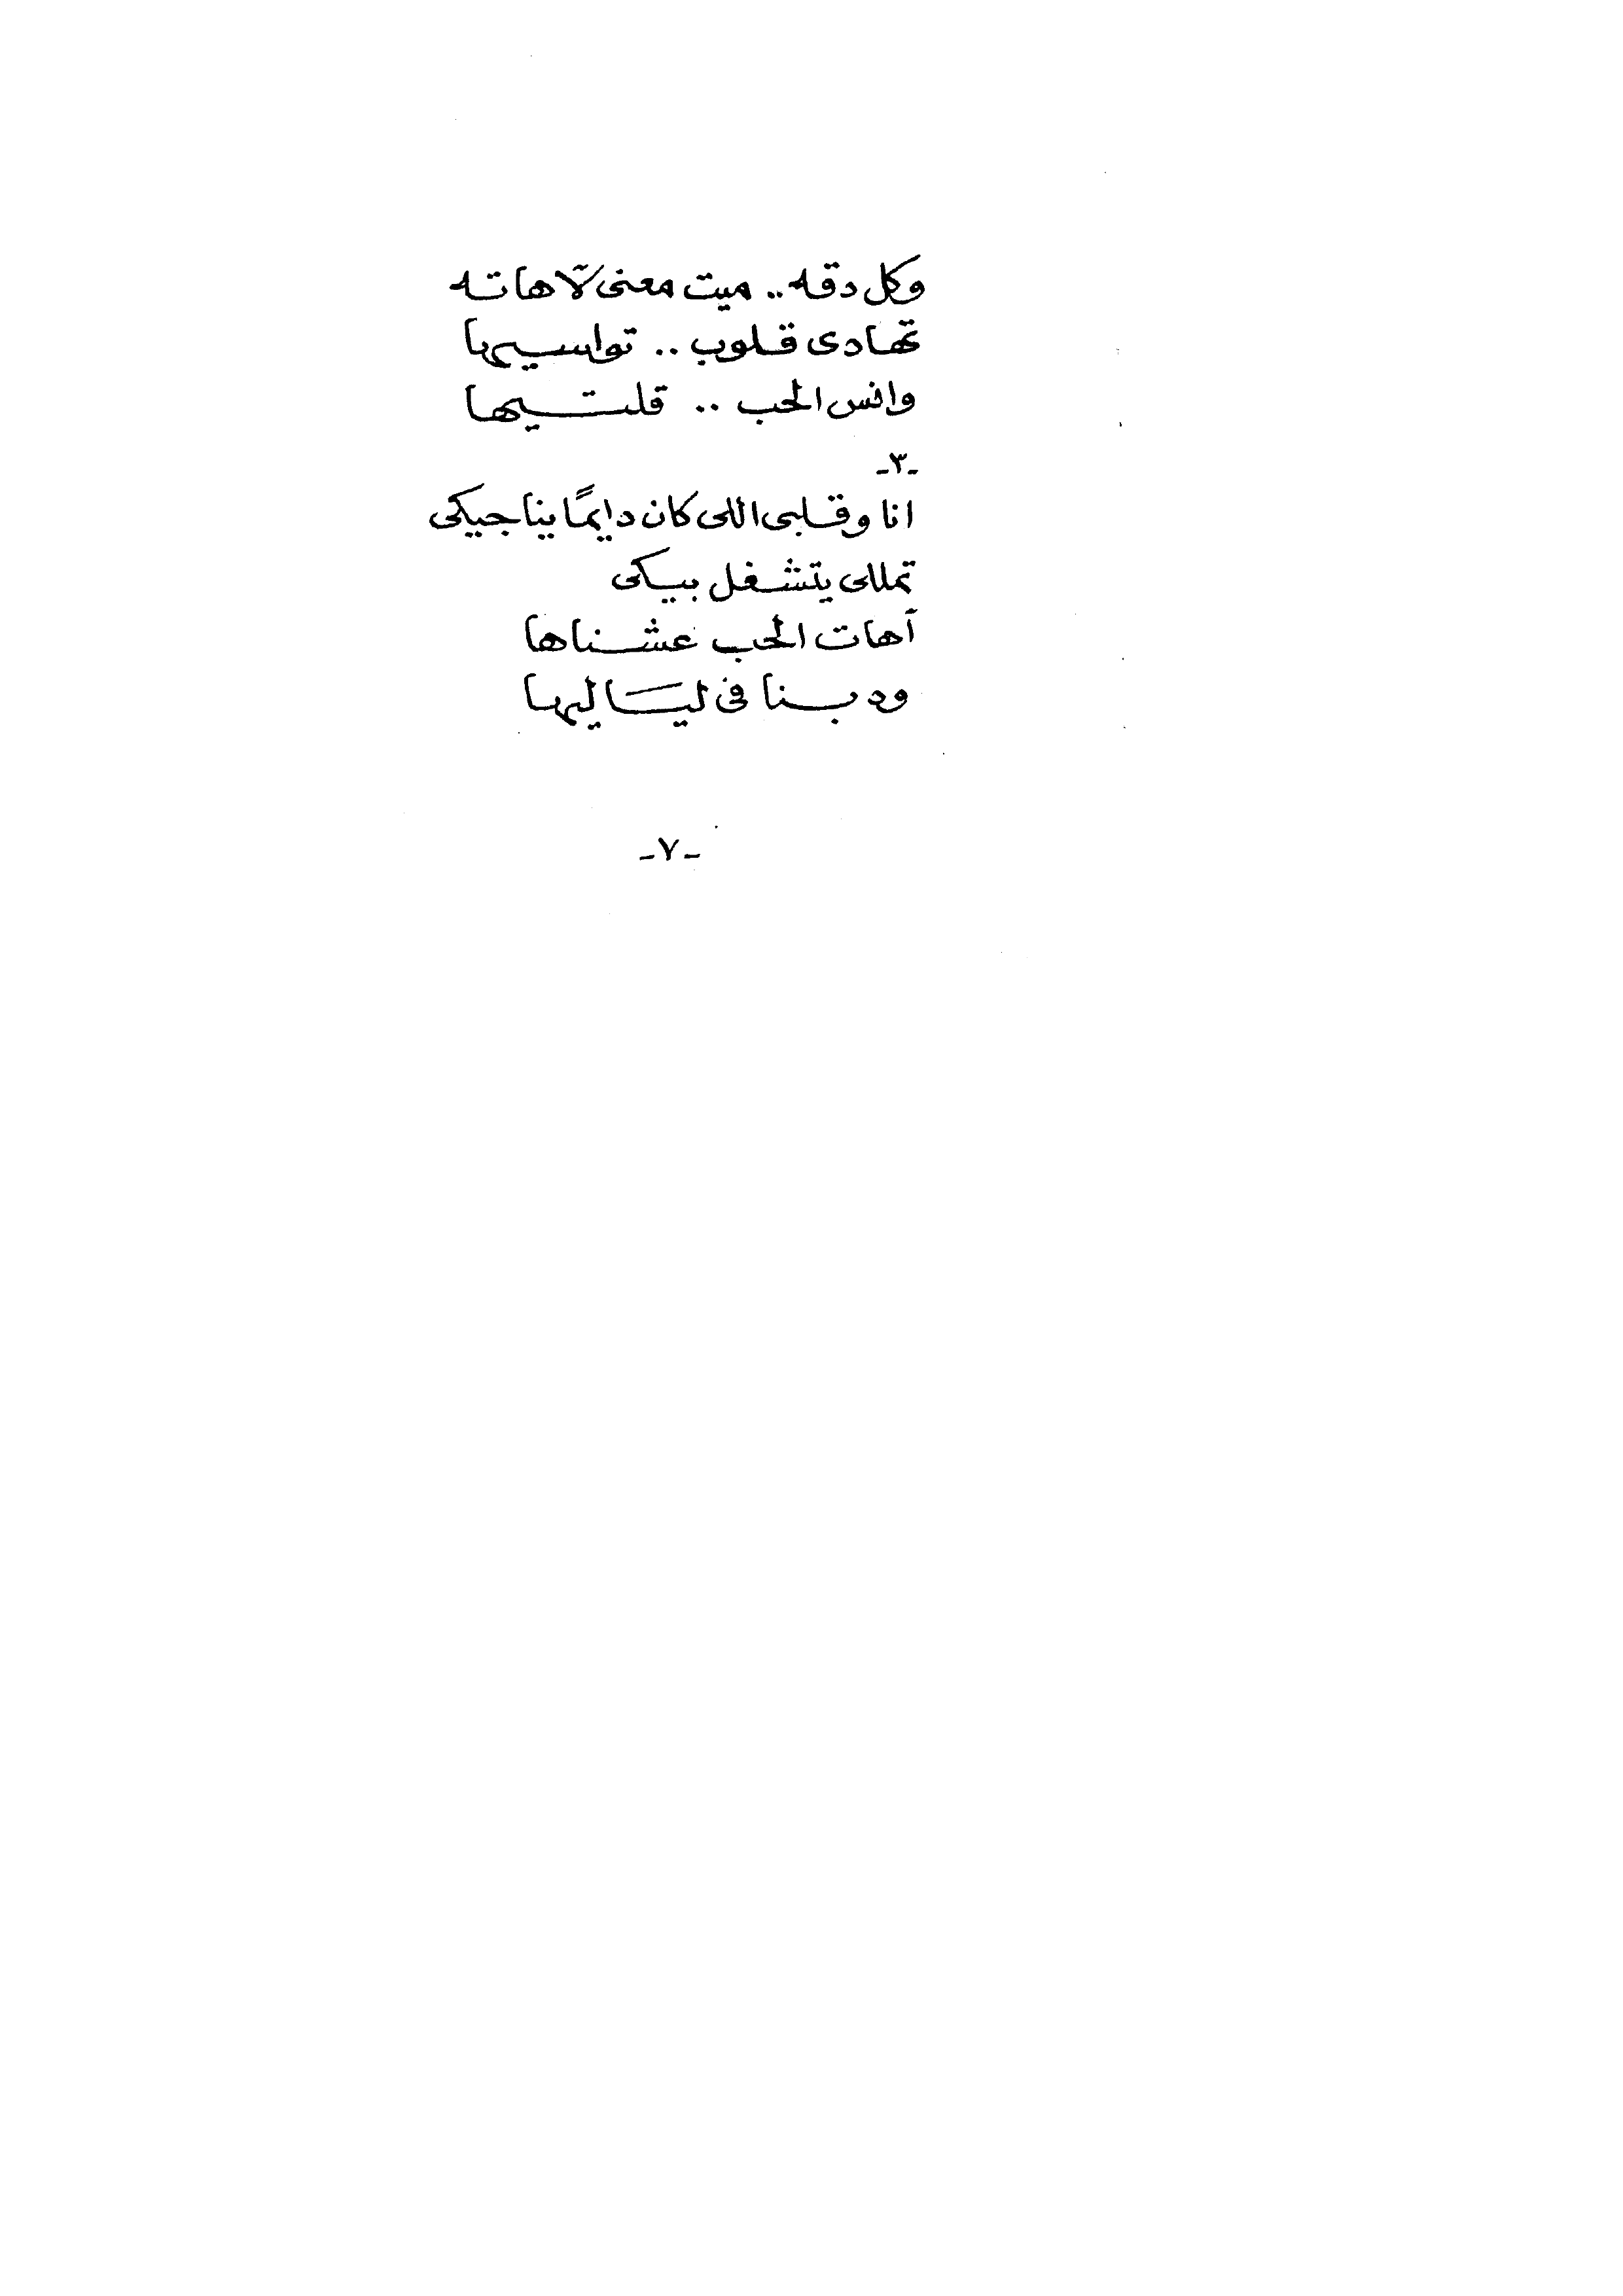 وكل دقه.. ميت معنى لآهاته
تهادى قلوب .. تواسيها
وانس الحب .. قلتيها
-٣-
انا وقلبى اللى كان دايمًا يناجيكى
تمللى يتشغل بيكى
آهات الحب عشناها
ودبنا فى لياليها
-٧-